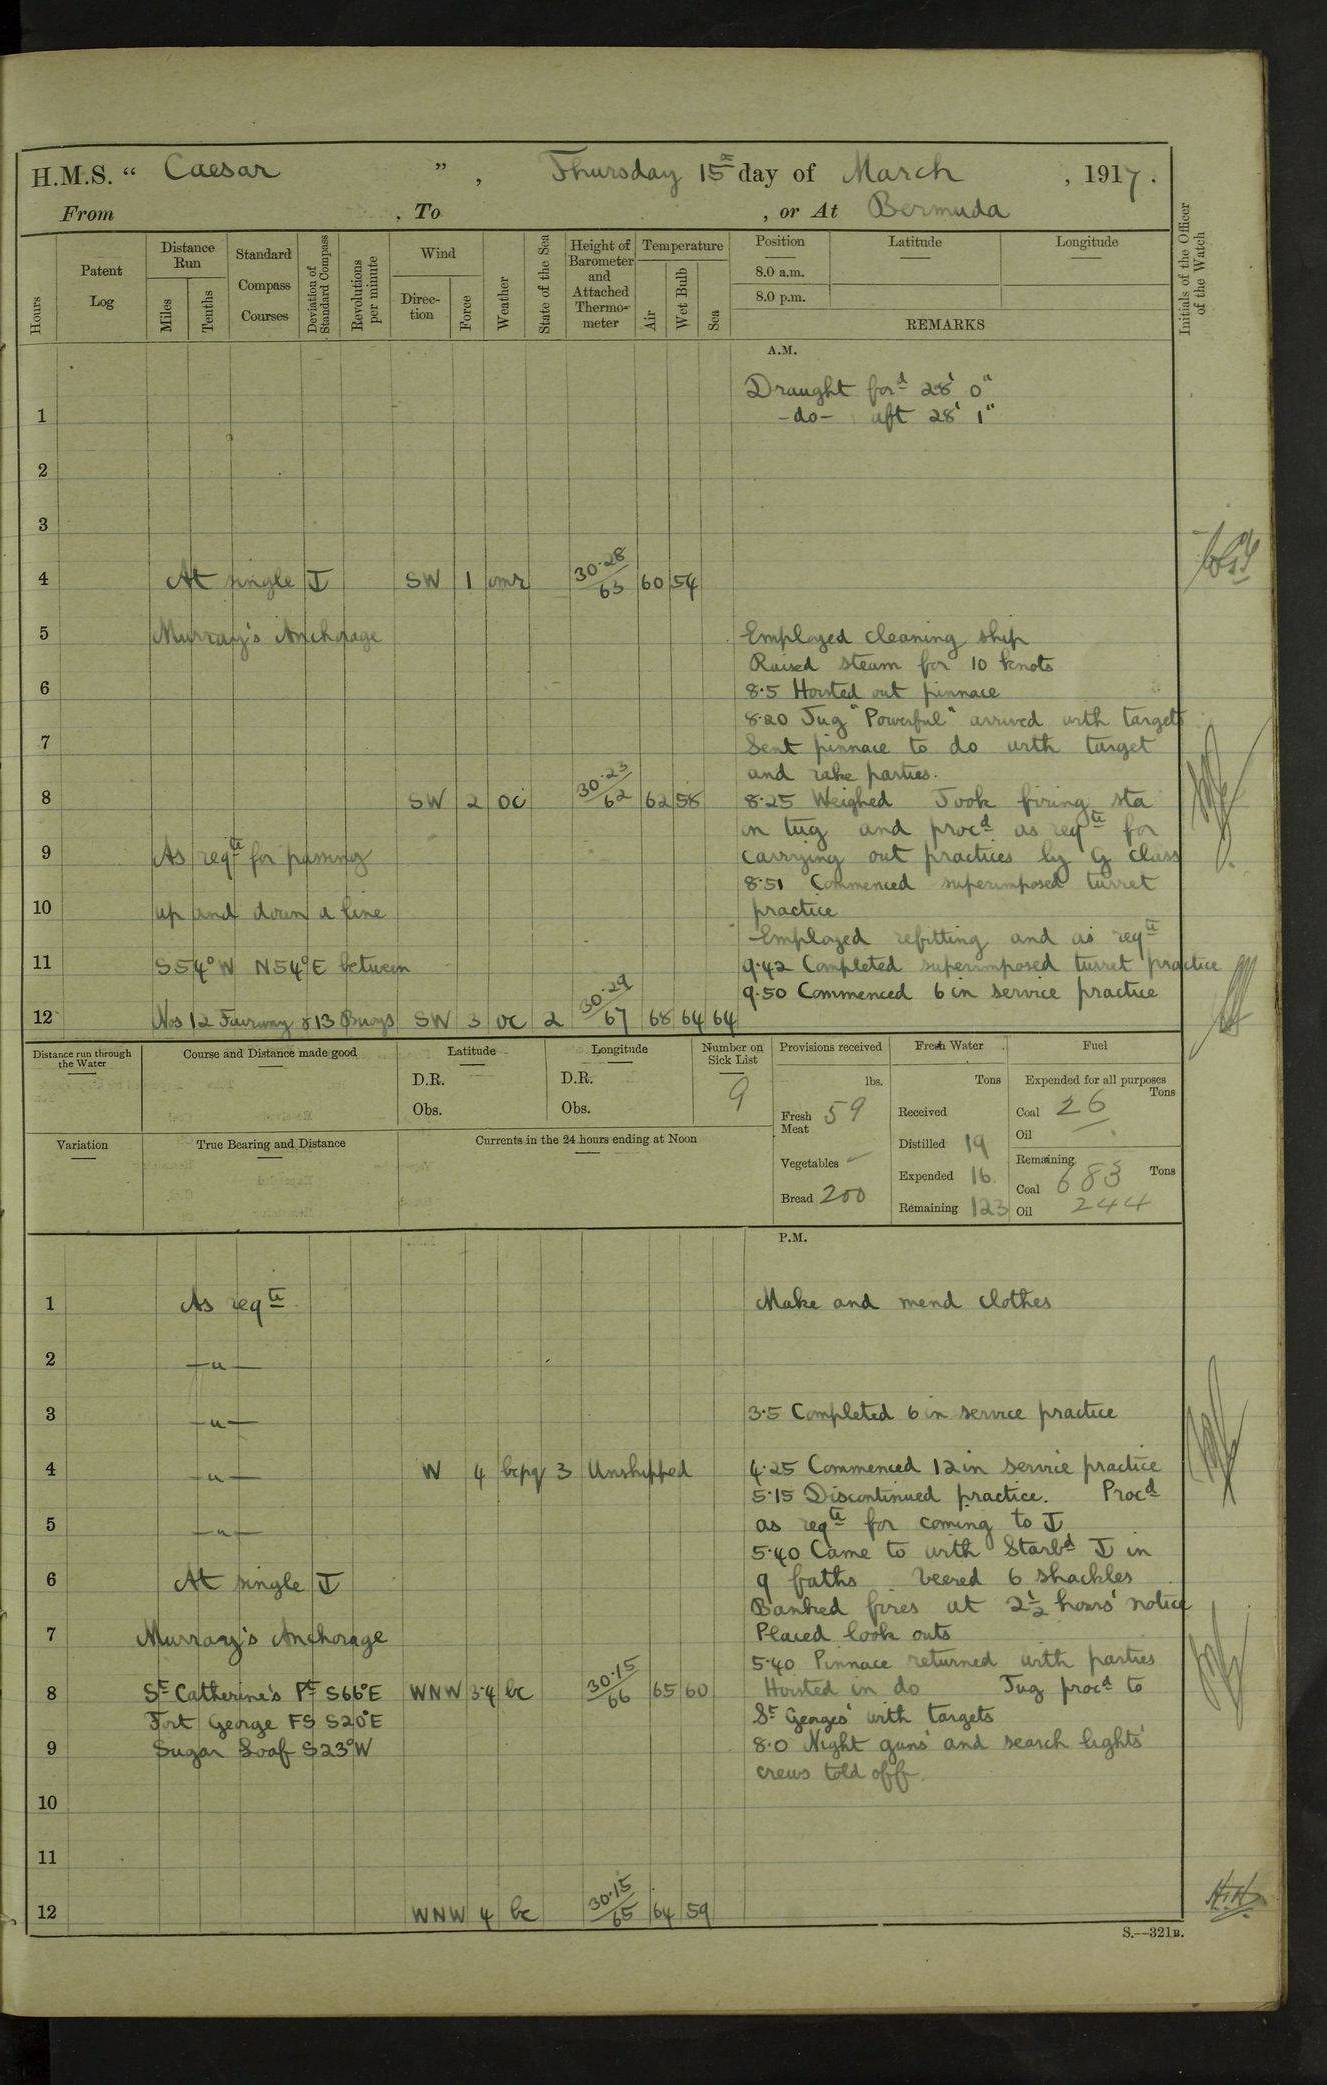 H.M.S. “ Caesar ” , Thursday 15th day of March , 1917 .
From , To , or At Bermuda
Hours
Patent Log
Distance Run
Miles
Tenths
Standard Compass Courses
Deviation of Standard Compass
Revolutions per minute
Wind
Direction
Force
Weather
State of the Sea
Height of Barometer and Attached Thermometer
Temperature
Air
Wet Bulb
Sea
Position
8.0 a.m.
8.0 p.m.
Latitude
Longitude
REMARKS
Initials of the Officer of the Watch
A.M.
Draught ford 28' 0"
1 -do- aft 28' 1"
2
3
4 At single SW 1 omr 30.28/63 60 54
5 Murray's Anchorage Employed cleaning ship
Raised steam for 10 knots
6 8.5 Hoisted out pinnace
8.20 Tug "Powerful" arrived with targets
7 Sent pinnace to do with target
and rake parties.
8 SW 2 oc 30.23/62 62 58 8.25 Weighed Took firing sta
in tug and procd as reqte for
9 As reqte for passing carrying out practices by G class
8.51 Commenced superimposed turret
10 up and down a line practice
Employed refitting and as reqte
11 S54°W N54°E between 9.42 Completed superimposed turret practice
9.50 Commenced 6 in service practice
12 Nos 12 Fairway & 13 Buoys SW 3 oc 2 30.29/67 68 64 64
Distance run through the Water
Course and Distance made good
Latitude
D.R.
Obs.
Longitude
D.R.
Obs.
Number on Sick List
9
Provisions received
lbs.
Fresh Meat 59
Vegetables –
Bread 200
Fresh Water
Tons
Received
Distilled 19
Expended 16
Remaining 123
Fuel
Expended for all purposes
Tons
Coal 26
Oil
Remaining
Tons
Coal 683
Oil 244
Variation
True Bearing and Distance
Currents in the 24 hours ending at Noon
P.M.
1 As reqte Make and mend clothes
2 —"—
3 —"— 3.5 Completed 6 in service practice
4 —"— W 4 bcpq 3 Unshipped 4.25 Commenced 12 in service practice
5.15 Discontinued practice. Procd
5 —"— as reqte for coming to
5.40 Came to with Starbd in
6 At single 9 faths veered 6 shackles
Banked fires at 2½ hours' notice
7 Murray's Anchorage Placed look outs
5.40 Pinnace returned with parties
8 St Catherine's Pt S66°E WNW 3-4 bc 30.15/66 65 60 Hoisted in do Tug procd to
Fort George FS S20°E St Georges' with targets
9 Sugar Loaf S23°W 8.0 Night guns' and search lights'
crews told off.
10
11
12 WNW 4 bc 30.15/65 64 59
S.—321B.